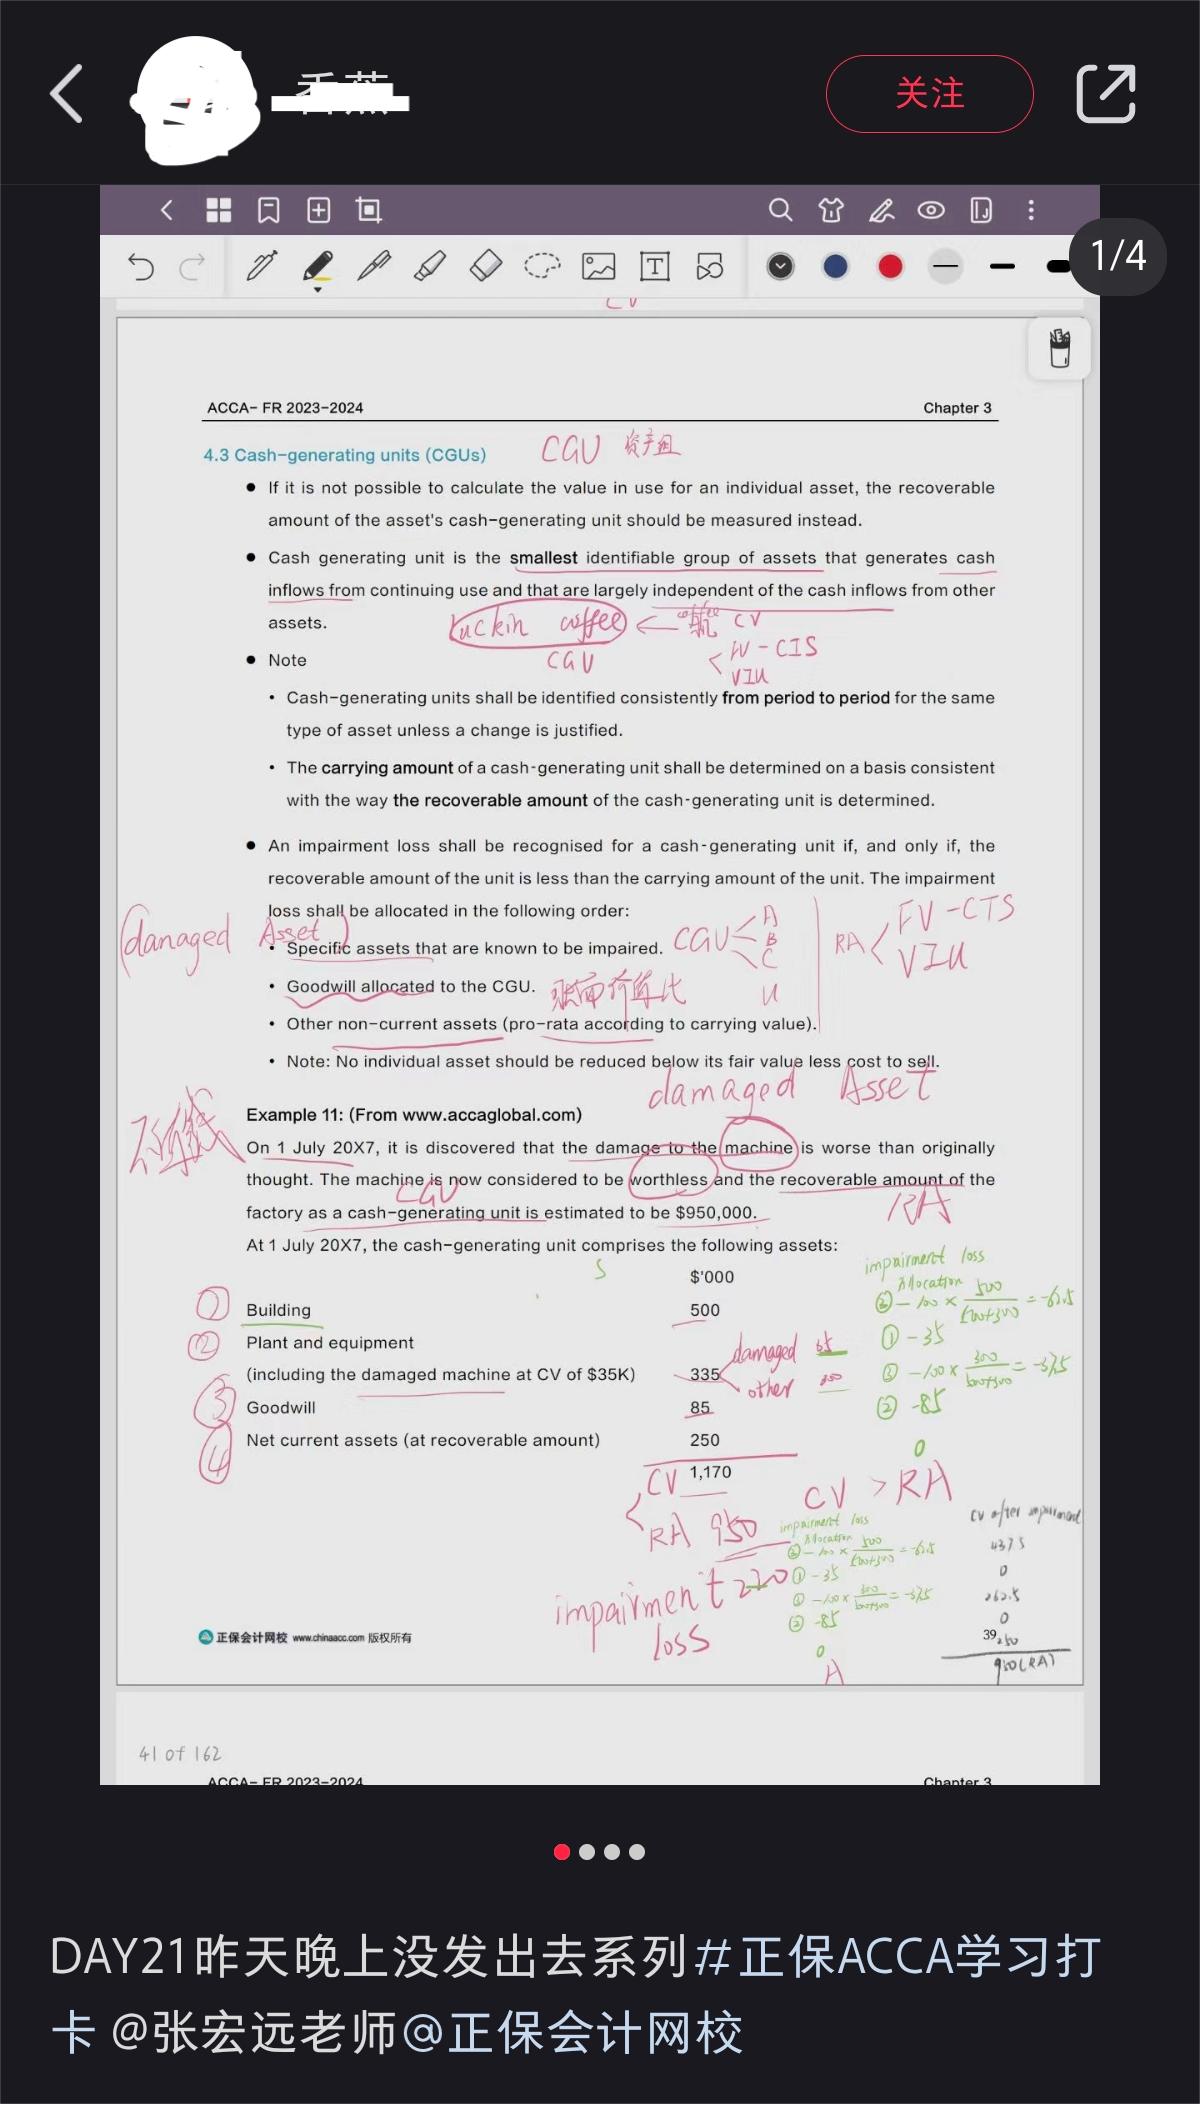 关注
1/4
ACCA- FR 2023-2024 Chapter 3
4.3 Cash-generating units (CGUs) CGU 资产组
● If it is not possible to calculate the value in use for an individual asset, the recoverable
amount of the asset's cash-generating unit should be measured instead.
● Cash generating unit is the smallest identifiable group of assets that generates cash
inflows from continuing use and that are largely independent of the cash inflows from other
assets.
luckin coffee ← coffee CV
CGU
FV-CTS
VIU
● Note
• Cash-generating units shall be identified consistently from period to period for the same
type of asset unless a change is justified.
• The carrying amount of a cash-generating unit shall be determined on a basis consistent
with the way the recoverable amount of the cash-generating unit is determined.
● An impairment loss shall be recognised for a cash-generating unit if, and only if, the
recoverable amount of the unit is less than the carrying amount of the unit. The impairment
loss shall be allocated in the following order:
(damaged Asset)
• Specific assets that are known to be impaired. CGU A B C
RA FV-CTS
VIU
• Goodwill allocated to the CGU.
• Other non-current assets (pro-rata according to carrying value).
• Note: No individual asset should be reduced below its fair value less cost to sell.
damaged Asset
Example 11: (From www.accaglobal.com)
On 1 July 20X7, it is discovered that the damage to the machine is worse than originally
thought. The machine is now considered to be worthless and the recoverable amount of the
CGU
factory as a cash-generating unit is estimated to be $950,000. RA
At 1 July 20X7, the cash-generating unit comprises the following assets:
$'000
① Building 500
② Plant and equipment
(including the damaged machine at CV of $35K) 335
damaged 35
other 300
③ Goodwill 85
④ Net current assets (at recoverable amount) 250
CV 1,170
RA 950
CV > RA
impairment loss
Allocation
③ -100 × 500/(500+300) = -62.5
① -35
③ -100 × 300/(500+300) = -37.5
② -85
0
impairment 220
loss
impairment loss
Allocation
③ -100 × 500/(500+300) = -62.5
① -35
③ -100 × 300/(500+300) = -37.5
② -85
0
A
CV after impairment
437.5
0
262.5
0
250
950(RA)
正保会计网校 www.chinaacc.com 版权所有
39
41 of 162
ACCA- FR 2023-2024 Chapter 3
DAY21昨天晚上没发出去系列#正保ACCA学习打
卡 @张宏远老师@正保会计网校